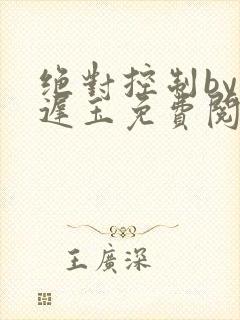 绝對控制by
遲玉免費閱
王廣深